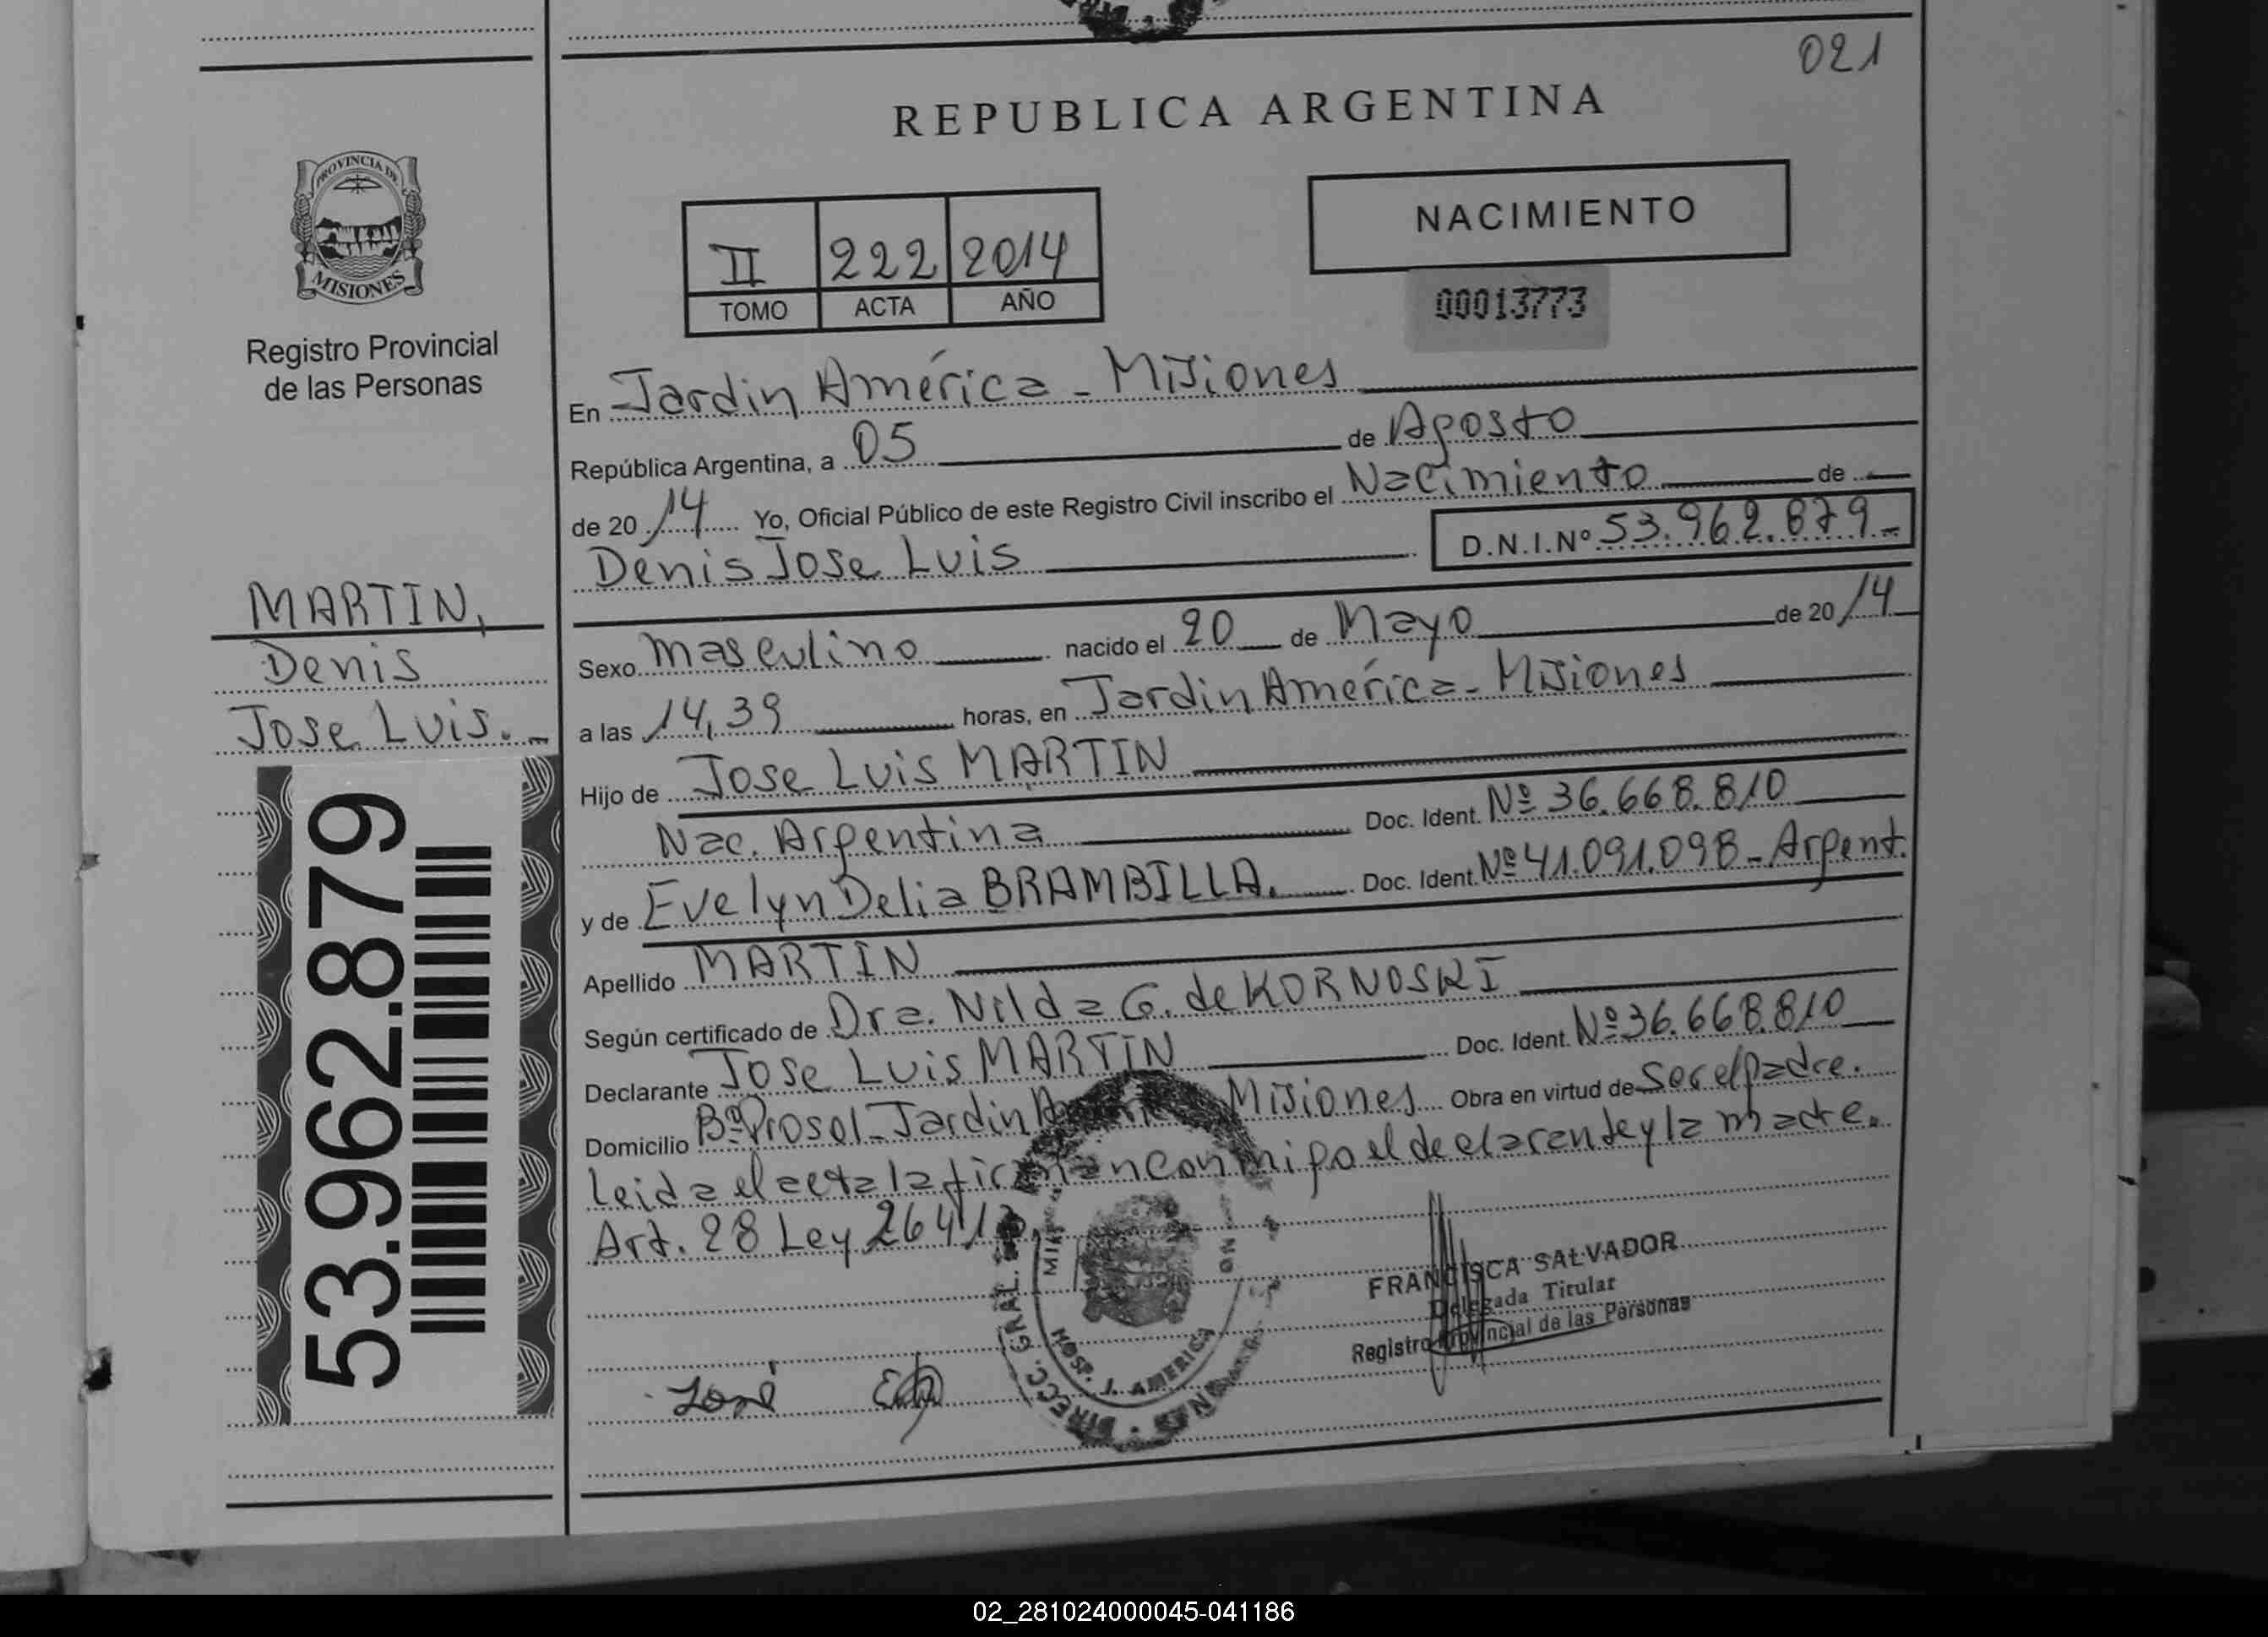 021
REPUBLICA ARGENTINA
PROVINCIA DE
MISIONES
Registro Provincial
de las Personas
II 222 2014
TOMO ACTA AÑO
NACIMIENTO
00013773
En Jardin América - Misiones
República Argentina, a 05 de Agosto
de 2014 Yo, Oficial Público de este Registro Civil inscribo el Nacimiento de
Denis Jose Luis D.N.I.Nº 53.962.879.-
MARTIN,
Denis
Jose Luis.-
Sexo masculino nacido el 20 de Mayo de 2014
a las 14,39 horas, en Jardin América - Misiones
Hijo de Jose Luis MARTIN
Nac. Argentina Doc. Ident. Nº 36.668.810
y de Evelyn Delia BRAMBILLA. Doc. Ident. Nº 41.091.098 - Argent.
Apellido MARTIN
Según certificado de Dra. Nilda G. de KORNOSKI
Declarante Jose Luis MARTIN Doc. Ident. Nº 36.668.810
Domicilio Bº Prosol - Jardin Misiones Obra en virtud de Ser el padre.
Leida el acta la firman conmigo el declarante y la madre.
Art. 28 Ley 26413
53.962.879
DIRECC. GRAL.
HOSP. J. AMERICA
FRANCISCA SALVADOR
Delegada Titular
Registro Provincial de las Personas
José
02_281024000045-041186